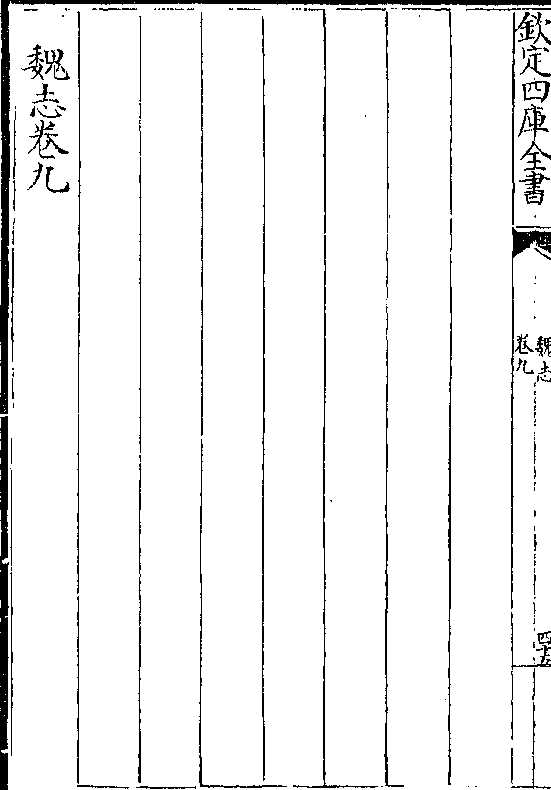 欽定四庫全書
魏志
卷九
四十五
魏志卷九